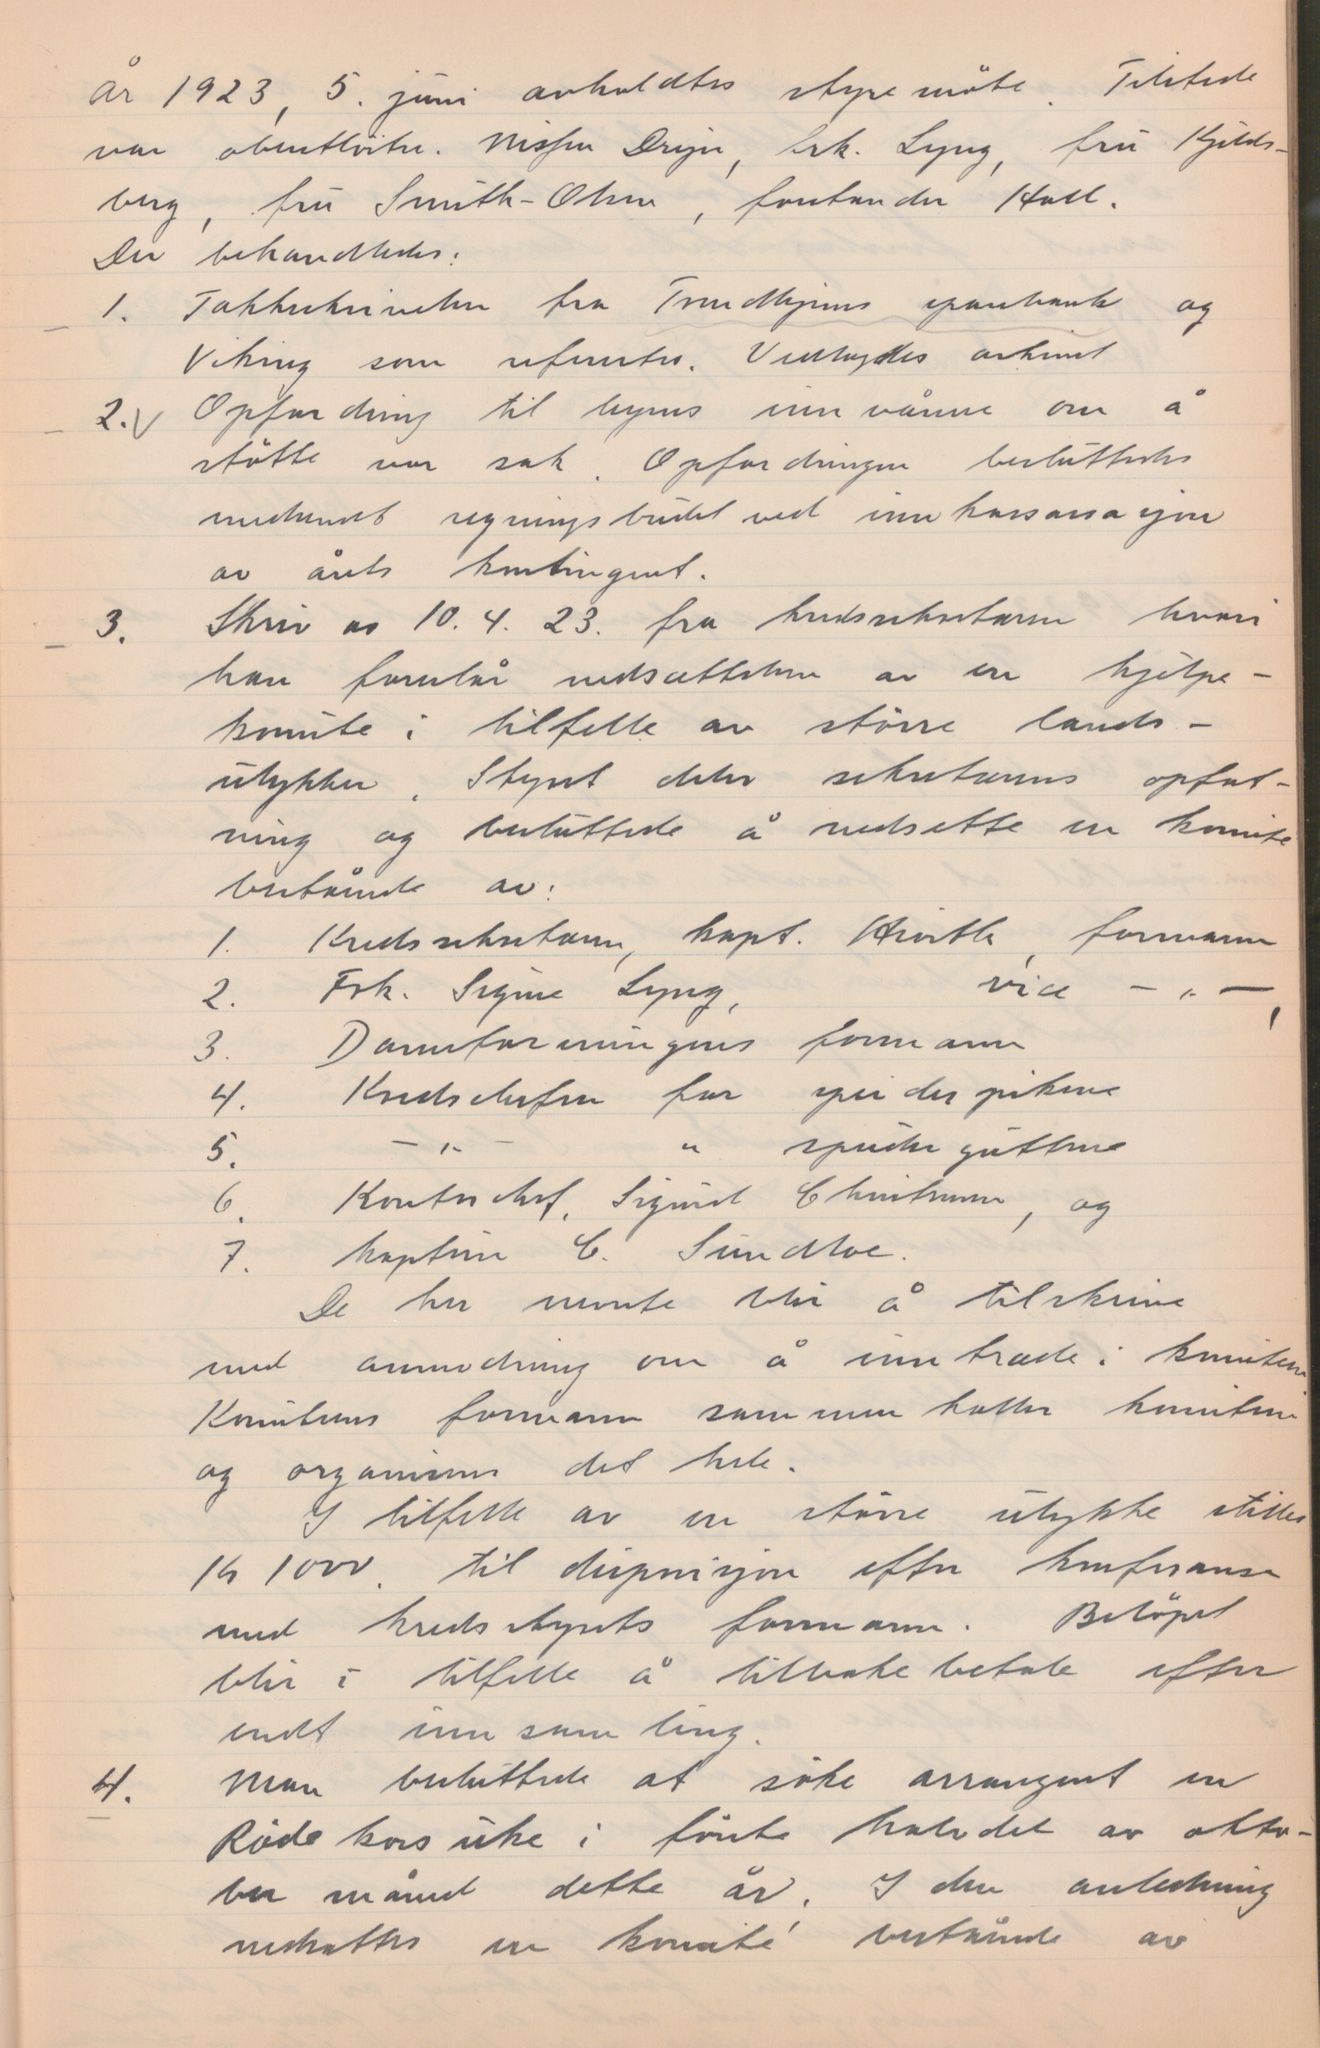 År 1923, 5. juni avholdtes styremöte. Tilstede
var oberstlöitn. Nissen Drejer, frk. Lyng, fru Kjelds-
berg, fru Smith-Olsen, forstander Hall.
Der behandledes:
1. Takkeskrivelser fra Trondhjems sparebank og
Viking som refertes. Vedlagdes arkivet
2. V Opfordring til byens innvånere om å
stötte vor sak. Opfordringen besluttedes
medsendt regningsbudet ved innkassasjon
av årets kontingent.
3. Skriv av 10.4.23. fra kredssekretæren hvori
han foreslår nedsættelsen av en hjelpe-
komite i tilfelle av större lands-
ulykker. Styret deler sekretærens opfat-
ning og besluttede å nedsette en komite
bestående av:
1. Kredssekretæren, kapt. Hirsth, formann
2. Frk. Signe Lyng, vice -"-,
3. Dameforeningens formann
4. Kredschefen for speiderpikene
5. -"- " speiderguttene
6. Kontorchef. Sigurd Christensen, og
7. kaptein C. Sundloe.
De her nevnte blir å tilskrive
med anmodning om å inntræde i komiteen.
Komiteens formann sammenkaller komiteen
og organiserer det hele.
I tilfelle av en större ulykke stilles
Kr 1000. til disposisjon efter konferanse
med kredsstyrets formann. Belöpet
blir i tilfelle å tilbakebetale efter
endt innsamling.
4. Man besluttede at söke arrangert en
Röde kors uke i förste halvdel av okto-
ber måned dette år. I den anledning
nedsattes en komité bestående av